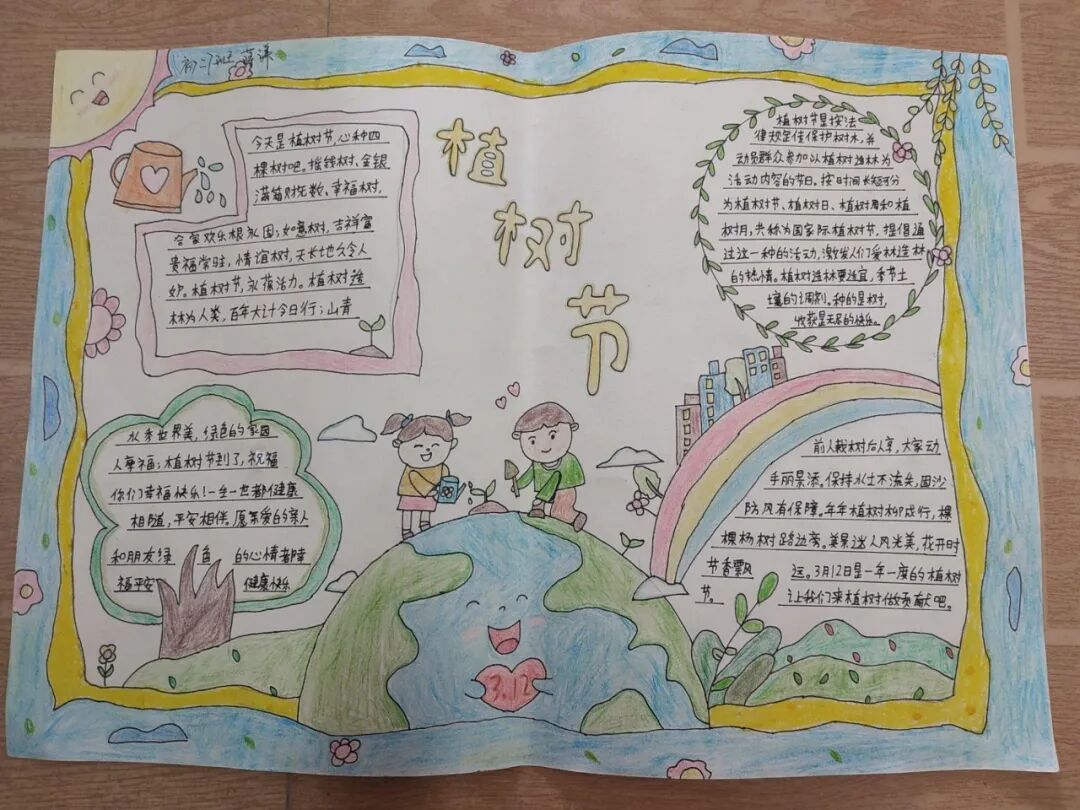 初二7班
植树节
今天是植树节,心种四
棵树吧。摇钱树、金银
满箱财无数、幸福树,
合家欢乐根永固;如意树,吉祥富
贵福常驻,情谊树,天长地久令人
妒。植树节,永葆活力。植树造
林为人类,百年大计今日行;山青
植树节是按法
律规定宣保护树木,并
动员群众参加以植树造林为
活动内容的节日。按时间长短可分
为植树节、植树日、植树周和植
树月,共称为国家际植树节,提倡通
过这一种的活动,激发人们爱林造林
的热情。植树造林要适宜,季节土
壤的调剂。种的是树,
收获是无尽的快乐。
水秀世界美,绿色的家园
人幸福;植树节到了,祝福
你们幸福快乐!一生一世都健康
相随,平安相伴,愿亲爱的亲人
和朋友绿 色 的心情者陪
福平安 健康快乐
前人栽树后人享,大家动
手丽景添,保持水土不流失,固沙
防风有保障。年年植树柳成行,棵
棵杨树路边旁。美景迷人风光美,花开时
节香飘 远。3月12日是一年一度的植树
节。 让我们来植树做贡献吧。
3.12